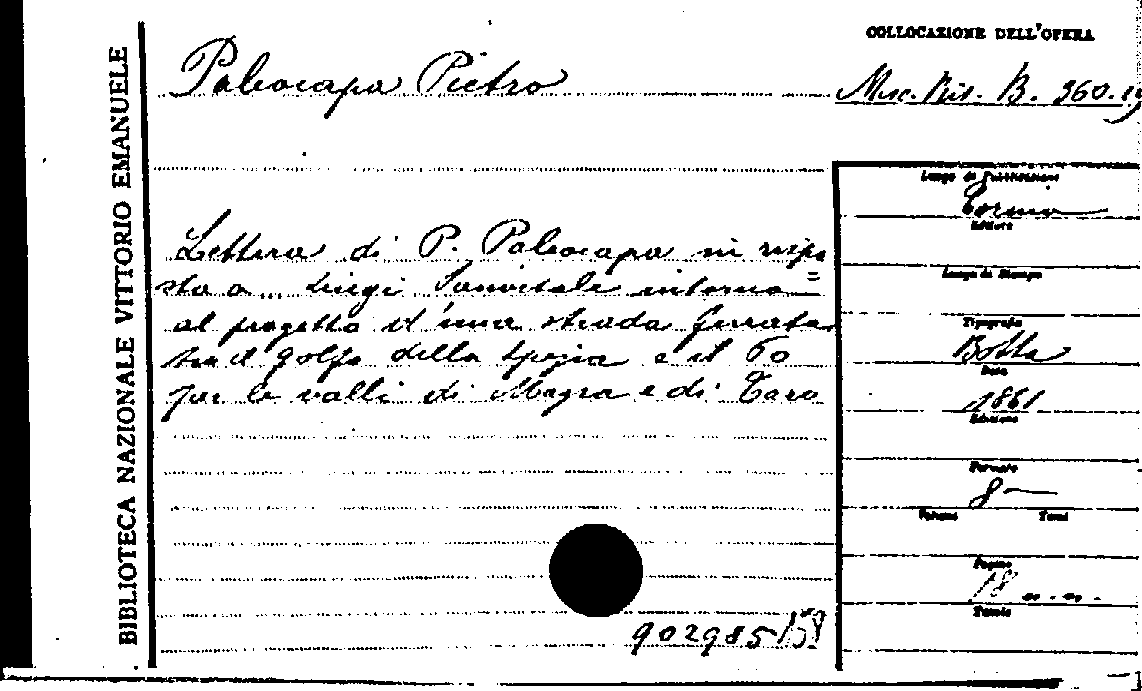 BIBLIOTECA NAZIONALE VITTORIO EMANUELE
COLLOCAZIONE DELL'OPERA
Paleocapa Pietro
Misc. Ris. B. 360.19
Lettera di P. Paleocapa in rispo
sta a Luigi Sanvitale intorno =
al progetto d'una strada ferrata
tra il golfo della Spezia e il Po
per le valli di Magra e di Taro
Luogo di Pubblicazione
Torino
Editore
Luogo di Stampa
Tipografia
Botta
Data
1861
Edizione
Formato
8
Volumi Tomi
Pagine
18
Tavole
902985/159